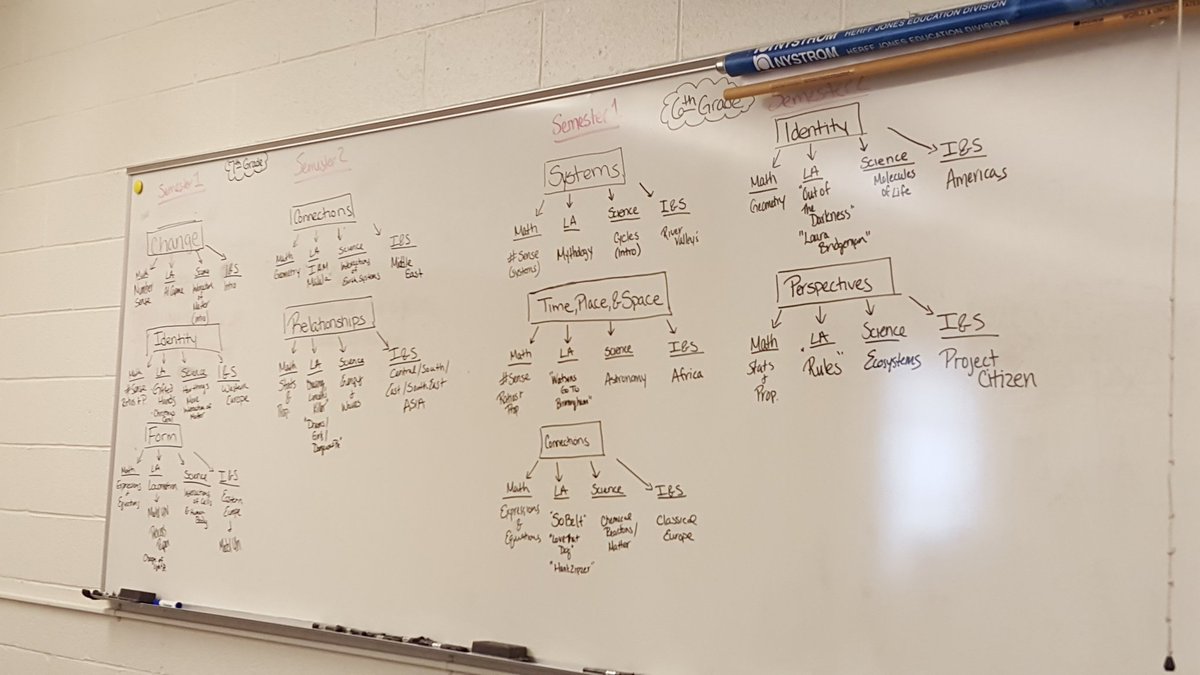 NYSTROM HERFF JONES EDUCATION DIVISION
NYSTROM HERFF JONES EDUCATION DIVISION
7th Grade
Semester 1
Change
Math
Number
Sense
LA
I&S
Intro
Identity
Math
#Sense
LA
Gifted
Hands
Science
More
I&S
Western
Europe
Form
Math
Expressions
&
Equations
LA
Locomotion
Model UN
Science
Interactions
of Cells
& Human
Body
I&S
Eastern
Europe
Model UN
Semester 2
Connections
Math
Geometry
LA
I AM
Malala
Science
Interactions
of
Earth Systems
I&S
Middle
East
Relationships
Math
Stats
&
Prop.
LA
Science
Energy
&
Waves
I&S
Central/South/
East/South East
ASIA
6th Grade
Semester 1
Systems
Math
#Sense
(systems)
LA
Mythology
Science
Cycles
(intro)
I&S
River
Valley's
Time, Place, & Space
Math
#Sense
Prop
LA
"Watsons
Go To
Birmingham"
Science
Astronomy
I&S
Africa
Connections
Math
Expressions
&
Equations
LA
"So B. It"
"Love that
Dog"
"Hank Zipzer"
Science
Chemical
Reactions/
Matter
I&S
Classical
Europe
Semester 2
Identity
Math
Geometry
LA
"Out of
The
Darkness"
"Laura
Bridgeman"
Science
Molecules
of Life
I&S
Americas
Perspectives
Math
Stats
&
Prop.
LA
"Rules"
Science
Ecosystems
I&S
Project
Citizen